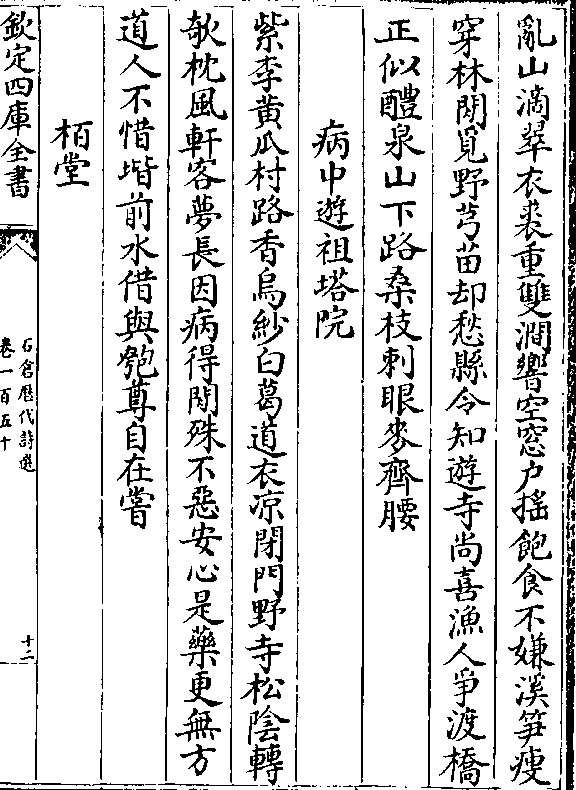 亂山滴翠衣裘重雙澗響空窓户揺飽食不嫌溪笋痩
穿林閒覓野芎苗却愁縣令知遊寺尚喜漁人爭渡橋
正似醴泉山下路桑枝刺眼麥齊腰
病中遊祖塔院
紫李黄瓜村路香烏紗白葛道衣凉閉門野寺松陰轉
欹枕風軒客夢長因病得閒殊不惡安心是藥更無方
道人不惜堦前水借與匏尊自在嘗
栢堂
欽定四庫全書
石倉歴代詩選
卷一百五十
十二